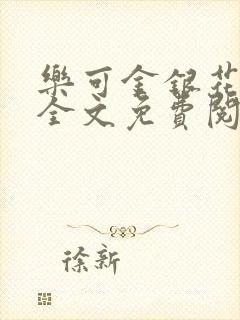 樂可金銀花
全文免費閱
徐新